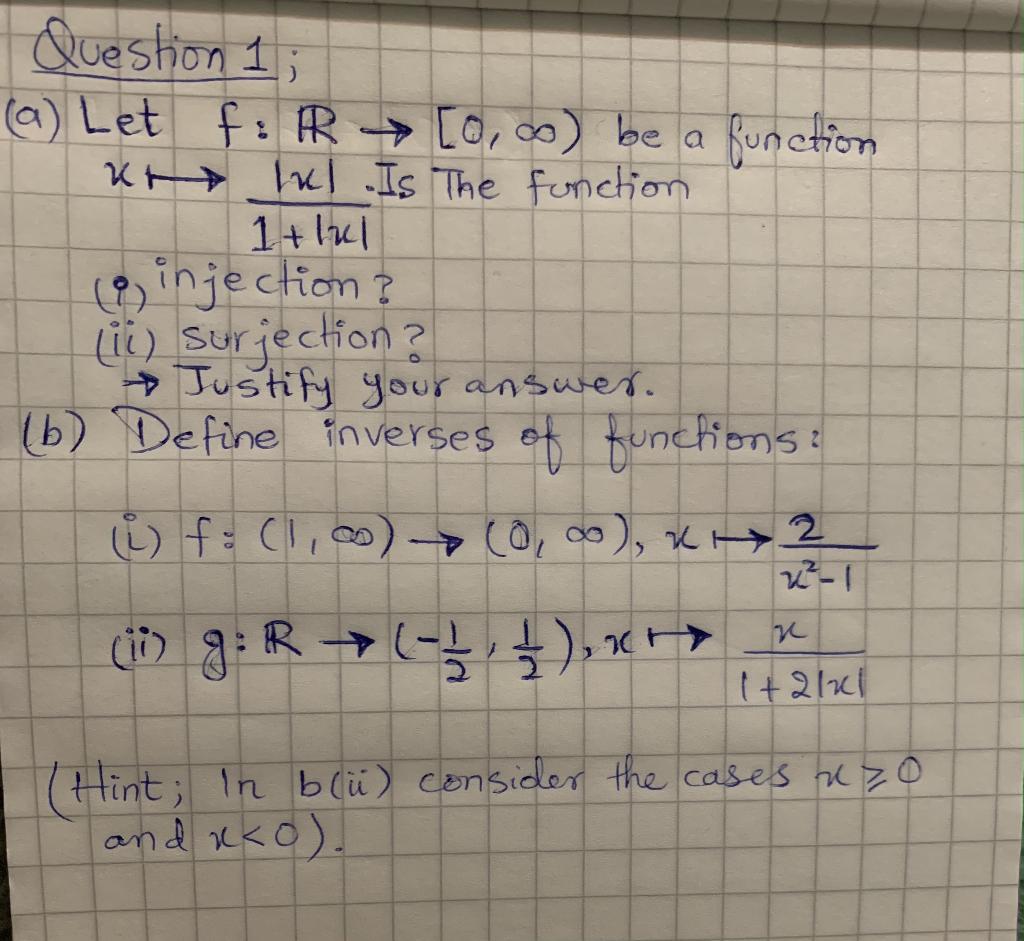 Question 1;
(a) Let f: ℝ → [0, ∞) be a function
x ↦ |x| / 1 + |x| . Is The function
(i) injection?
(ii) surjection?
→ Justify your answer.
(b) Define inverses of functions:
(i) f: (1, ∞) → (0, ∞), x ↦ 2 / x²-1
(ii) g: ℝ → (-1/2, 1/2), x ↦ x / 1+2|x|
(Hint; In b(ii) consider the cases x ≥ 0
and x<0).